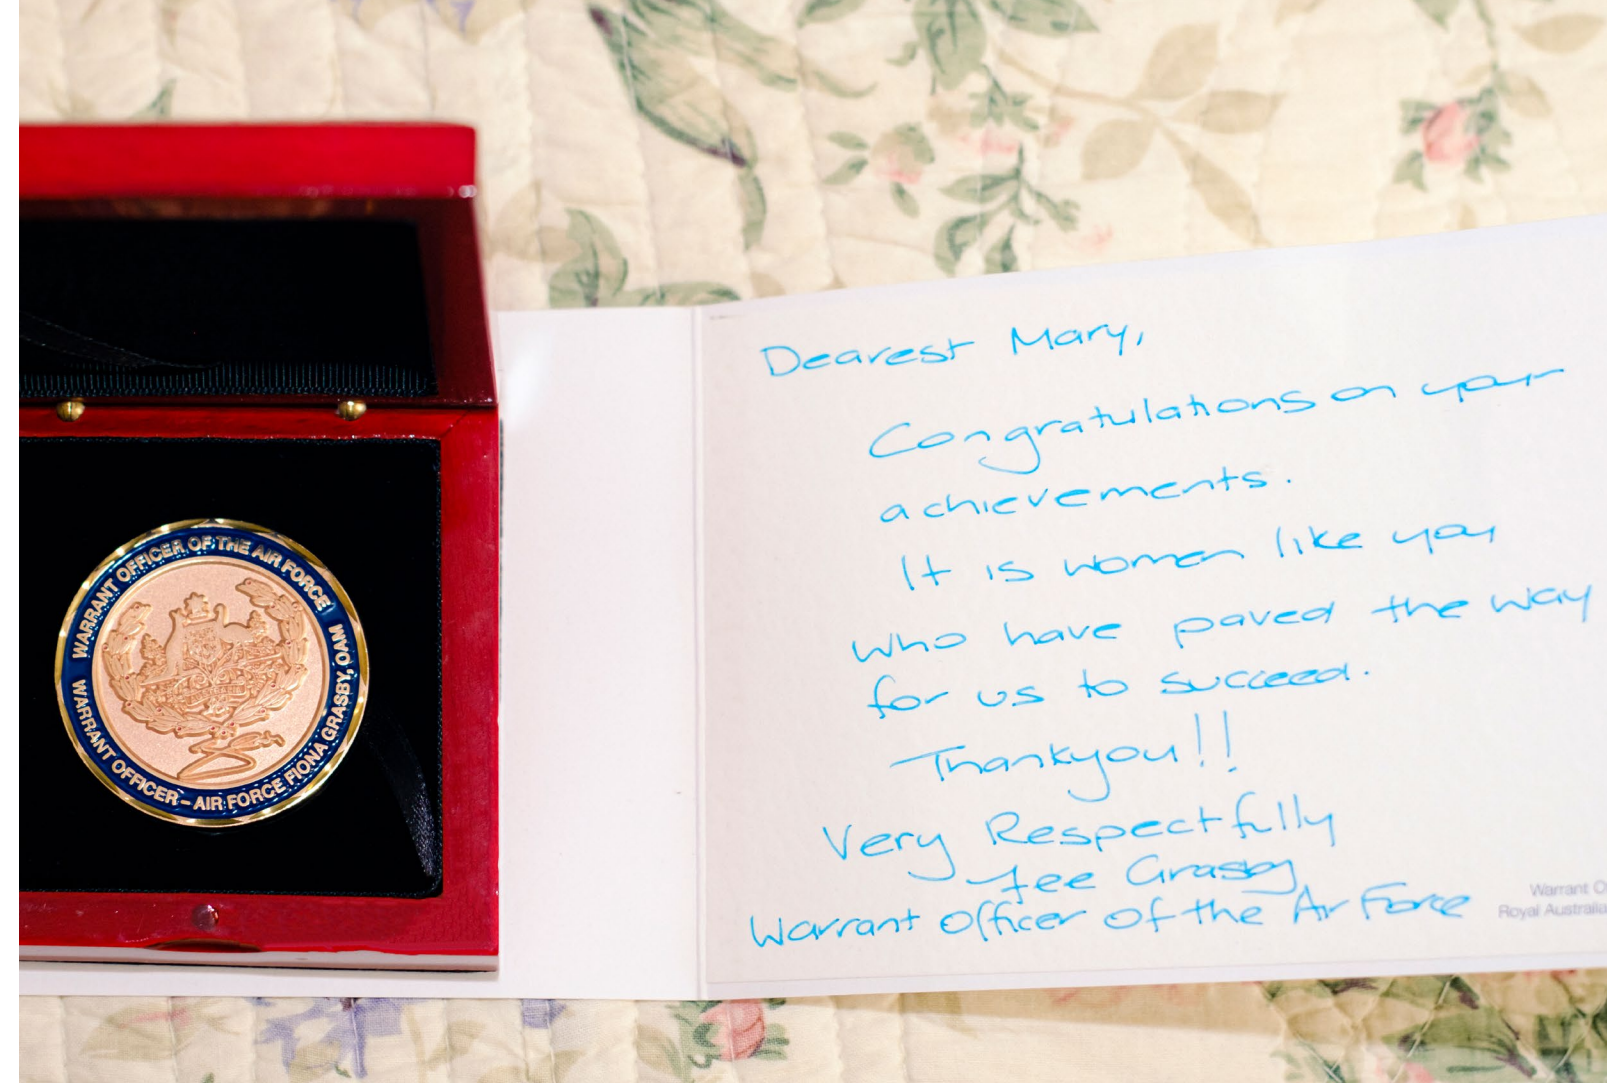 WARRANT OFFICER OF THE AIR FORCE
WARRANT OFFICER - AIR FORCE FIONA GRASBY, OAM
Dearest Mary,
Congratulations on your
achievements.
It is women like you
who have paved the way
for us to succeed.
Thankyou!!
Very Respectfully
Fee Grasby
Warrant Officer of the Air Force
Warrant O
Royal Australia